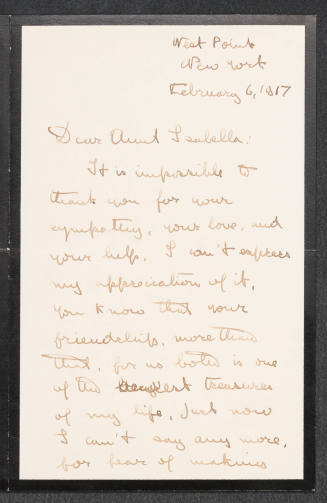 West Point
New York
February 6, 1917
Dear Aunt Isabella:
It is impossible to
thank you for your
sympathy, your love, and
your help. I can't express
my appreciation of it,
you know that your
friendship, more than
that, for us both is one
of the treasures
of my life. Just now
I can't say any more,
for fear of making